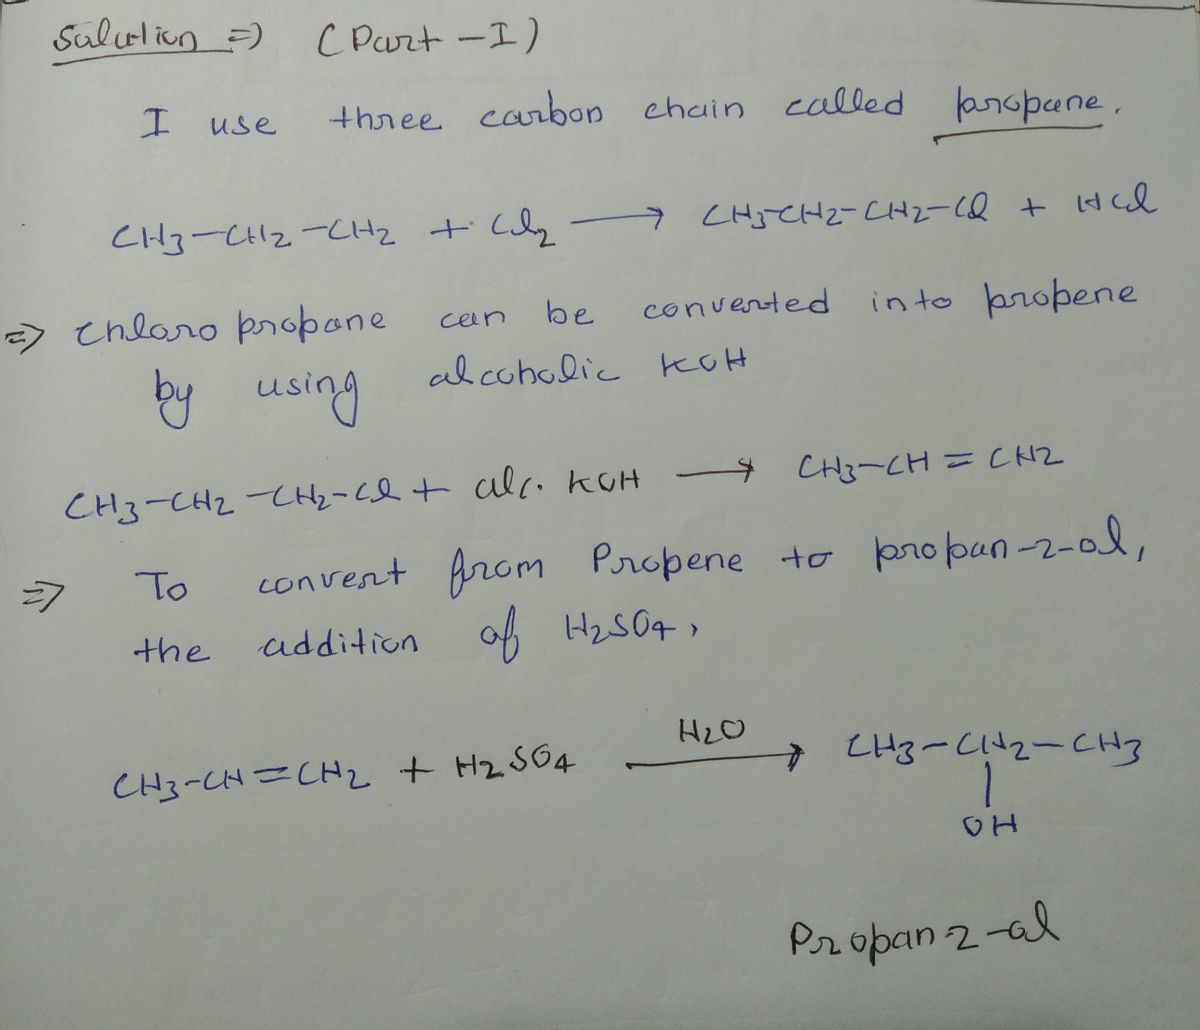 Solution => (Part -I)
I use three carbon chain called propane.
CH3-CH2-CH2 + Cl2 → CH3-CH2-CH2-Cl + HCl
=> Chloro propane can be converted into propene
by using alcoholic KOH
CH3-CH2-CH2-Cl + alc. KOH → CH3-CH=CH2
=> To convert from Propene to propan-2-ol,
the addition of H2SO4,
H2O
CH3-CH=CH2 + H2SO4 → CH3-CH2-CH3
|
OH
Propan 2-ol